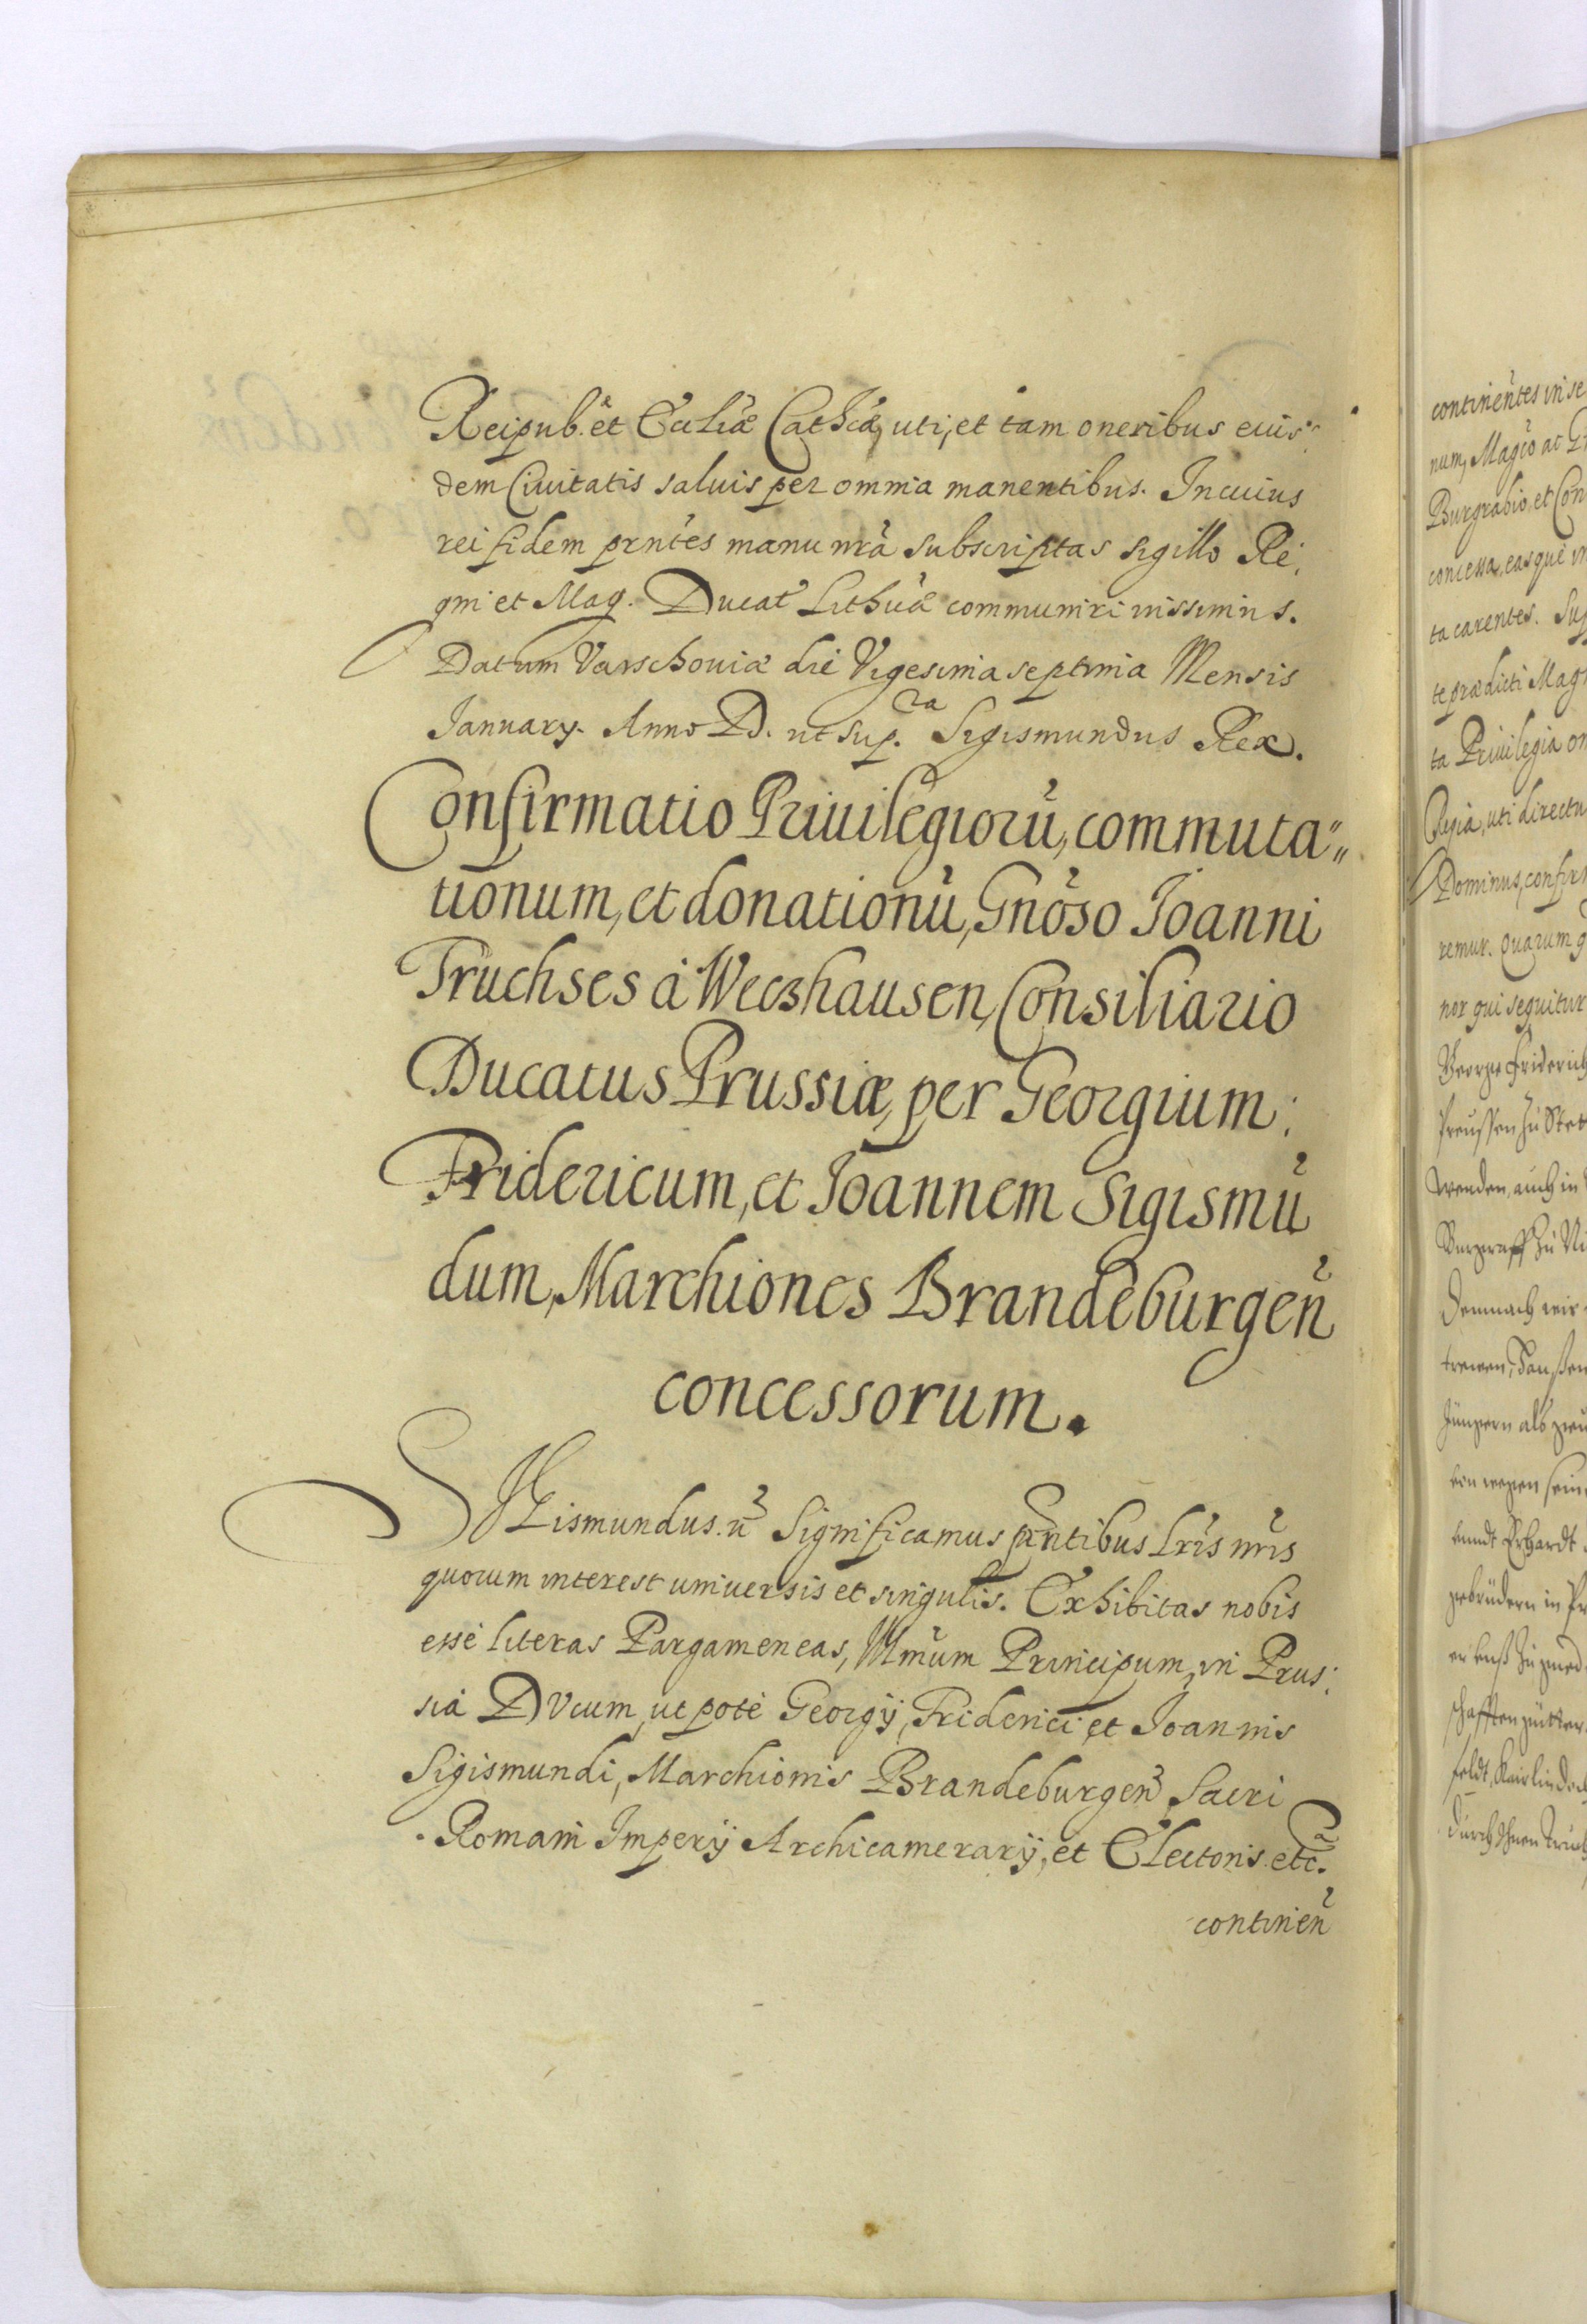 Reipub. et Eccliæ Cathcæ, uti, et tam oneribus eius
dem Ciuitatis saluis per omnia manentibus. In cuius
rei fidem pr̃ntes manu nr̃a subscriptas sigillo Re:
gni et Mag. Ducat Lithuæ communiri iussimus.
Datum Varschouiæ die Vigesima septima Mensis
January. Anno D. ut sup.ra Sigismundus Rex.
Confirmatio Priuilegiorũ, commuta„
tionum, et donationũ, Gnõso Joanni
Truchses à Weczhausen, Consiliario
Ducatus Prussiæ, per Georgium:
Fridericum, et Joannem Sigismũ
dum, Marchiones Brandeburgeñ
concessorum.
SIGismundus. ũ Significamus pñtibus Lrĩs nrĩs
quorum interest uniuersis et singulis. Exhibitas nobis
esse literas Pargameneas, Illmũm Principum, in Prus:
sia DVcum, ut pote Georgÿ, Friderici, et Joannis
Sigismundi, Marchionis Brandeburgeñ, Sacri
Romani Imperÿ Archicamerarÿ, et Electoris etc.
contineñ
continẽntes in se
num, Magco ac G
Burgrabio, et Con
concessa, easque in
ta carentes. Sup
te prædicti Mag
ta Priuilegia om
Regia, uti directu
Dominus, confir
remur. Quarum
nor qui sequitur
Georg Friderich
Preussen zu Stet
Wenden, auch in
Burgraff zu Nü
Demnach wir